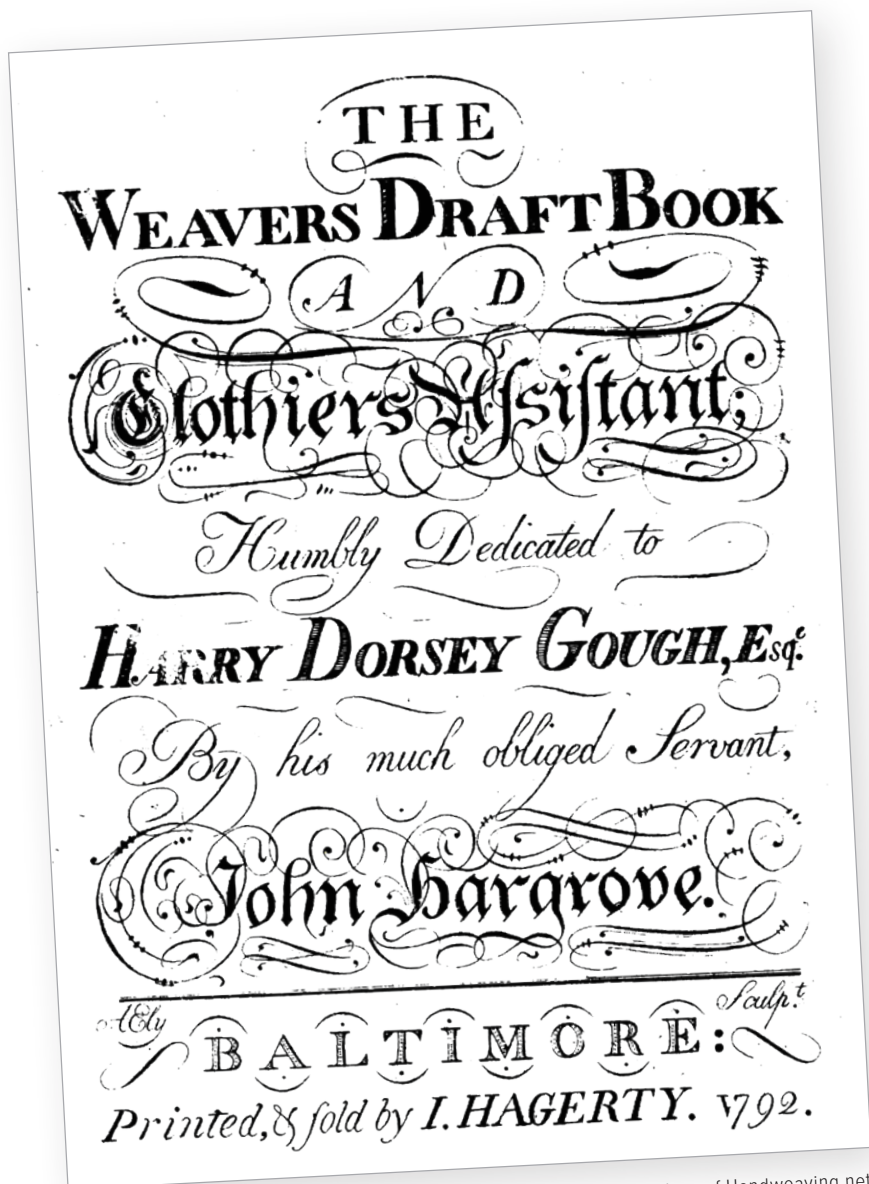 THE
WEAVERS DRAFT BOOK
AND
Clothiers Aſsiſtant;
Humbly Dedicated to
HARRY DORSEY GOUGH, Esqͬ.
By his much obliged Servant,
John Hargrove.
A Ely Sculp.ᵗ
BALTIMORE:
Printed, & ſold by I. HAGERTY. 1792.
of Handweaving.net